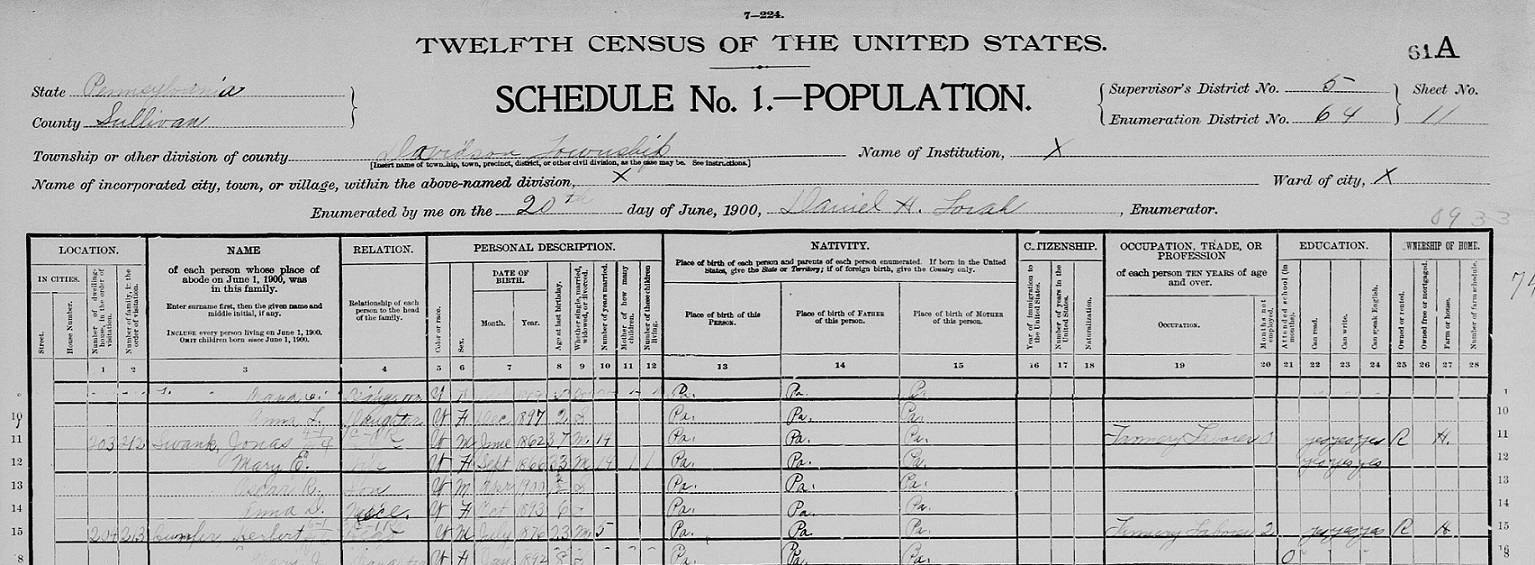 7—224.
TWELFTH CENSUS OF THE UNITED STATES.
61A
State Pennsylvania
SCHEDULE No. 1.—POPULATION.
Supervisor's District No. 5
Sheet No.
County Sullivan
Enumeration District No. 64
11
Township or other division of county Davidson Township
[Insert name of township, town, precinct, district, or other civil division, as the case may be. See instructions.]
Name of Institution, X
Name of incorporated city, town, or village, within the above-named division, X
Ward of city, X
Enumerated by me on the 20th day of June, 1900, Daniel H. Lorah, Enumerator.
LOCATION.
NAME
RELATION.
PERSONAL DESCRIPTION.
NATIVITY.
CITIZENSHIP.
OCCUPATION, TRADE, OR PROFESSION
EDUCATION.
OWNERSHIP OF HOME.
IN CITIES.
Street.
House Number.
Number of dwelling-house, in the order of visitation.
Number of family, in the order of visitation.
of each person whose place of abode on June 1, 1900, was in this family.
Enter surname first, then the given name and middle initial, if any.
INCLUDE every person living on June 1, 1900.
OMIT children born since June 1, 1900.
Relationship of each person to the head of the family.
Color or race.
Sex.
DATE OF BIRTH.
Month.
Year.
Age at last birthday.
Whether single, married, widowed, or divorced.
Number of years married.
Mother of how many children.
Number of these children living.
Place of birth of each person and parents of each person enumerated. If born in the United States, give the State or Territory; if of foreign birth, give the Country only.
Place of birth of this PERSON.
Place of birth of FATHER of this person.
Place of birth of MOTHER of this person.
Year of immigration to the United States.
Number of years in the United States.
Naturalization.
of each person TEN YEARS of age and over.
OCCUPATION.
Months not employed.
Attended school (in months).
Can read.
Can write.
Can speak English.
Owned or rented.
Owned free or mortgaged.
Farm or house.
Number of farm schedule.
1 2 3 4 5 6 7 8 9 10 11 12 13 14 15 16 17 18 19 20 21 22 23 24 25 26 27 28
Pa. Pa.
10 Anna L. Daughter W F Dec 1897 2 S Pa. Pa. Pa. 10
11 203 212 Swank, Jonas W M June 1862 37 M 14 Pa. Pa. Pa. Tannery Laborer yes yes yes R H. 11
12 Mary E. W F Sept 1866 33 M 14 1 1 Pa. Pa. Pa. yes yes yes 12
13 Oscar R. Son W M Apr 1900 S Pa. Pa. Pa. 13
14 Niece W F Oct 1893 6 S Pa. Pa. Pa. 14
15 204 213 Herbert W M July 1876 23 M 5 Pa. Pa. Pa. Tannery Laborer 2 yes yes yes R H 15
Pa. Pa. Pa.